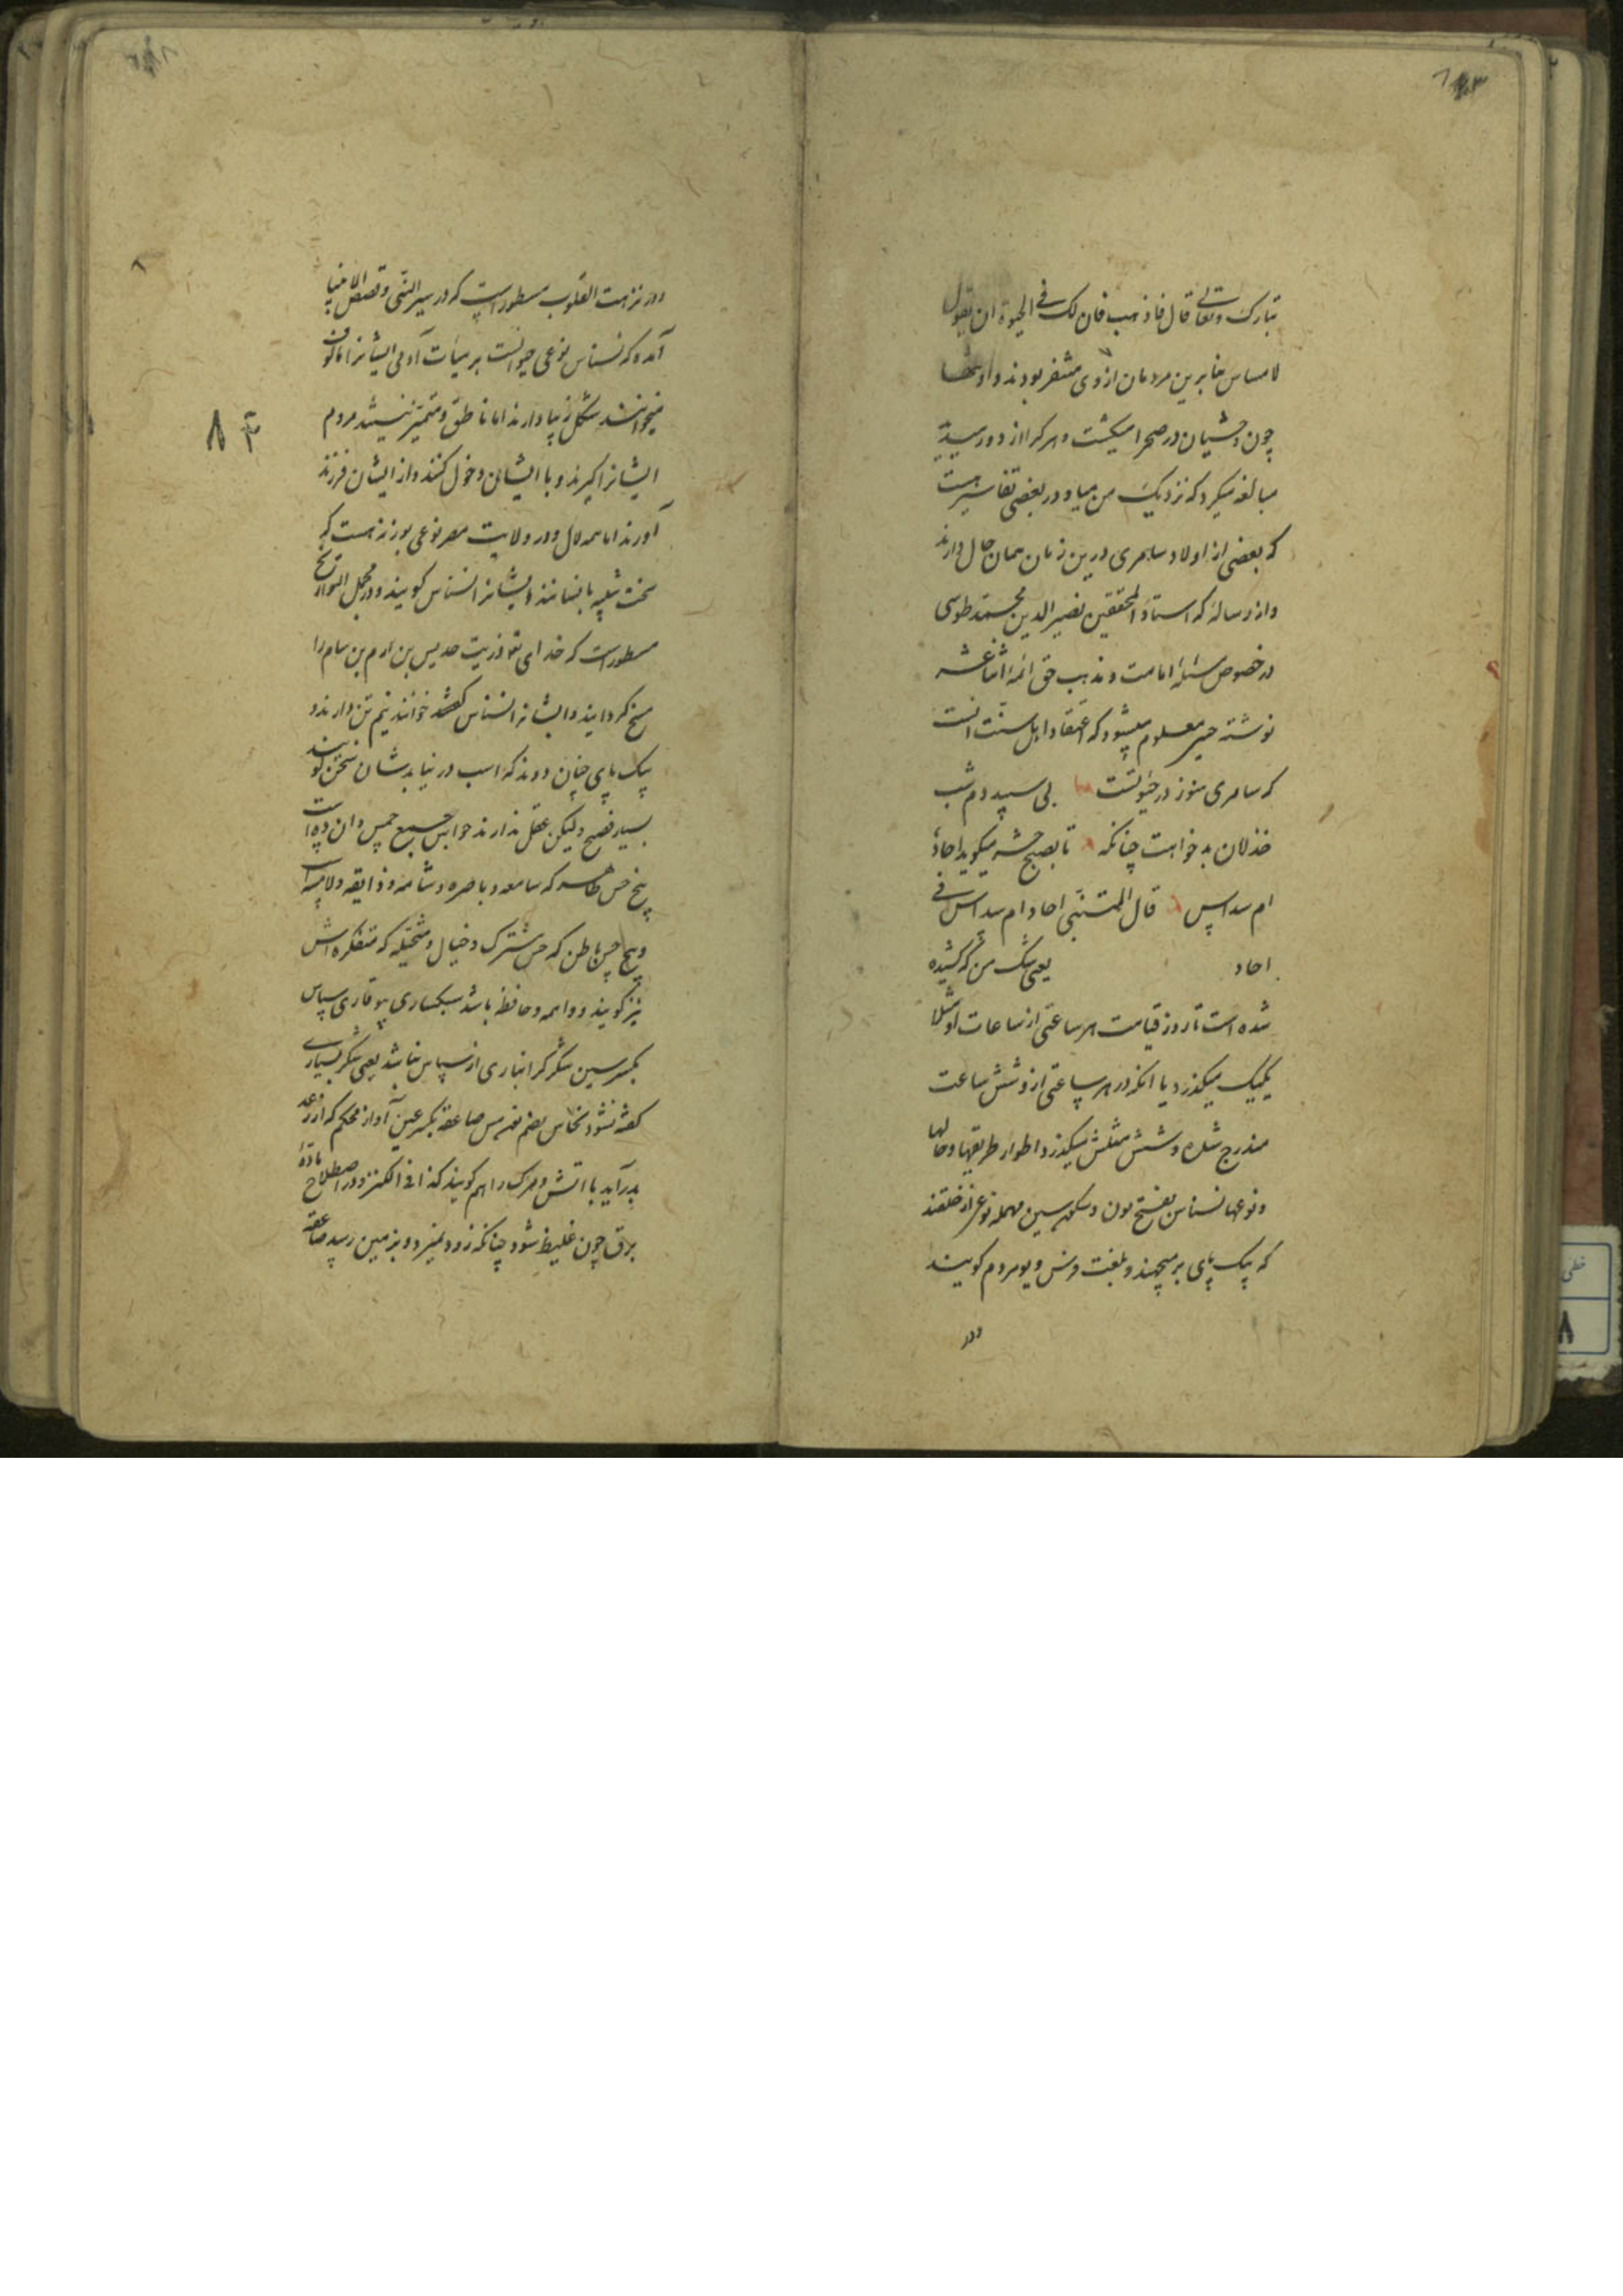 تبارک وتعالی قال فاذهب فان لک فی الحیوة ان تقول
لا مساس بنابرین مردمان ازوی متنفر بودند و او تنها
چون وحشیان در صحرا میکشت و هر کرا از دور میدید
مبالغه میکرد که نزدیک من میا و در بعضی تفاسیر هست
که بعضی از اولاد سامری درین زمان همان حال دارند
واز رساله که استاد المحققین نصیر الدین محمد طوسی
در خصوص مسئله امامت و مذهب حق ائمه اثنا عشر
نوشته معلوم میشود که اعتقاد اهل سنت انست
که سامری هنوز در حیوتست بی سپیده دم شب
خذلان بدخواهت چنانکه تا بصبح حشر میکوید احاد
ام سداس قال المتنبی احاد ام سداس فی
احاد یعنی شک من که کشیده
شده است تا روز قیامت هر ساعتی از ساعات او مثلا
یکیک میکذرد یا انکه در هر ساعتی ازو شش ساعت
مندرج شده و شش مثلش میکذرد اطوار طریقها و حالها
و نوعها نسناس بفتح نون و سکون سین مهمله نوعی از خلقند
که بیک پای برمیجهند و بلغت فرس دیو مردم کویند
در
در نزهت القلوب مسطور است که در سیر النبی و قصص الانبیا
آمده که نسناس نوعی حیوانست بر هیأت آدمی ایشانرا
میخوانند شکل زیبا دارند اما ناطق و متمیز نیستند مردم
ایشانرا کیرند و با ایشان دخول کنند و از ایشان فرزند
آورند اما همه لال و در ولایت مصر نوعی بوزنه هست که
سخت شبیه بانسانند ایشانرا نسناس کویند و در مجمل التواریخ
مسطور است که خدای تع ذریت جدیس بن ارم بن سام را
مسخ کردانید و ایشانرا نسناس خوانند نیم تن دارند و
بیک پای چنان دوند که اسب در نیابدشان سخن کویند
بسیار فصیح ولیکن عقل ندارند حواس جمع حس و ان ده است
پنج حس ظاهر که سامعه و باصره و شامه و ذایقه و لامسه است
و پنج حس باطن که حس مشترک و خیال و متخیله که متفکره اش
نیز کویند و واهمه و حافظه باشد سبکساری بیوقاری سپاس
بکسر سین شکر کرانباری از سپاس نباشد یعنی شکر بسیاری
کفته نشود نحاس بضم نون مس صاعقه بکسر عین آواز محکم که از رعد
بدرآید با آتش و مرک را هم کویند کذا فی الکنز و در اصطلاح ماده
برق چون غلیظ شود چنانکه زود نمیرد و بزمین رسد صاعقه